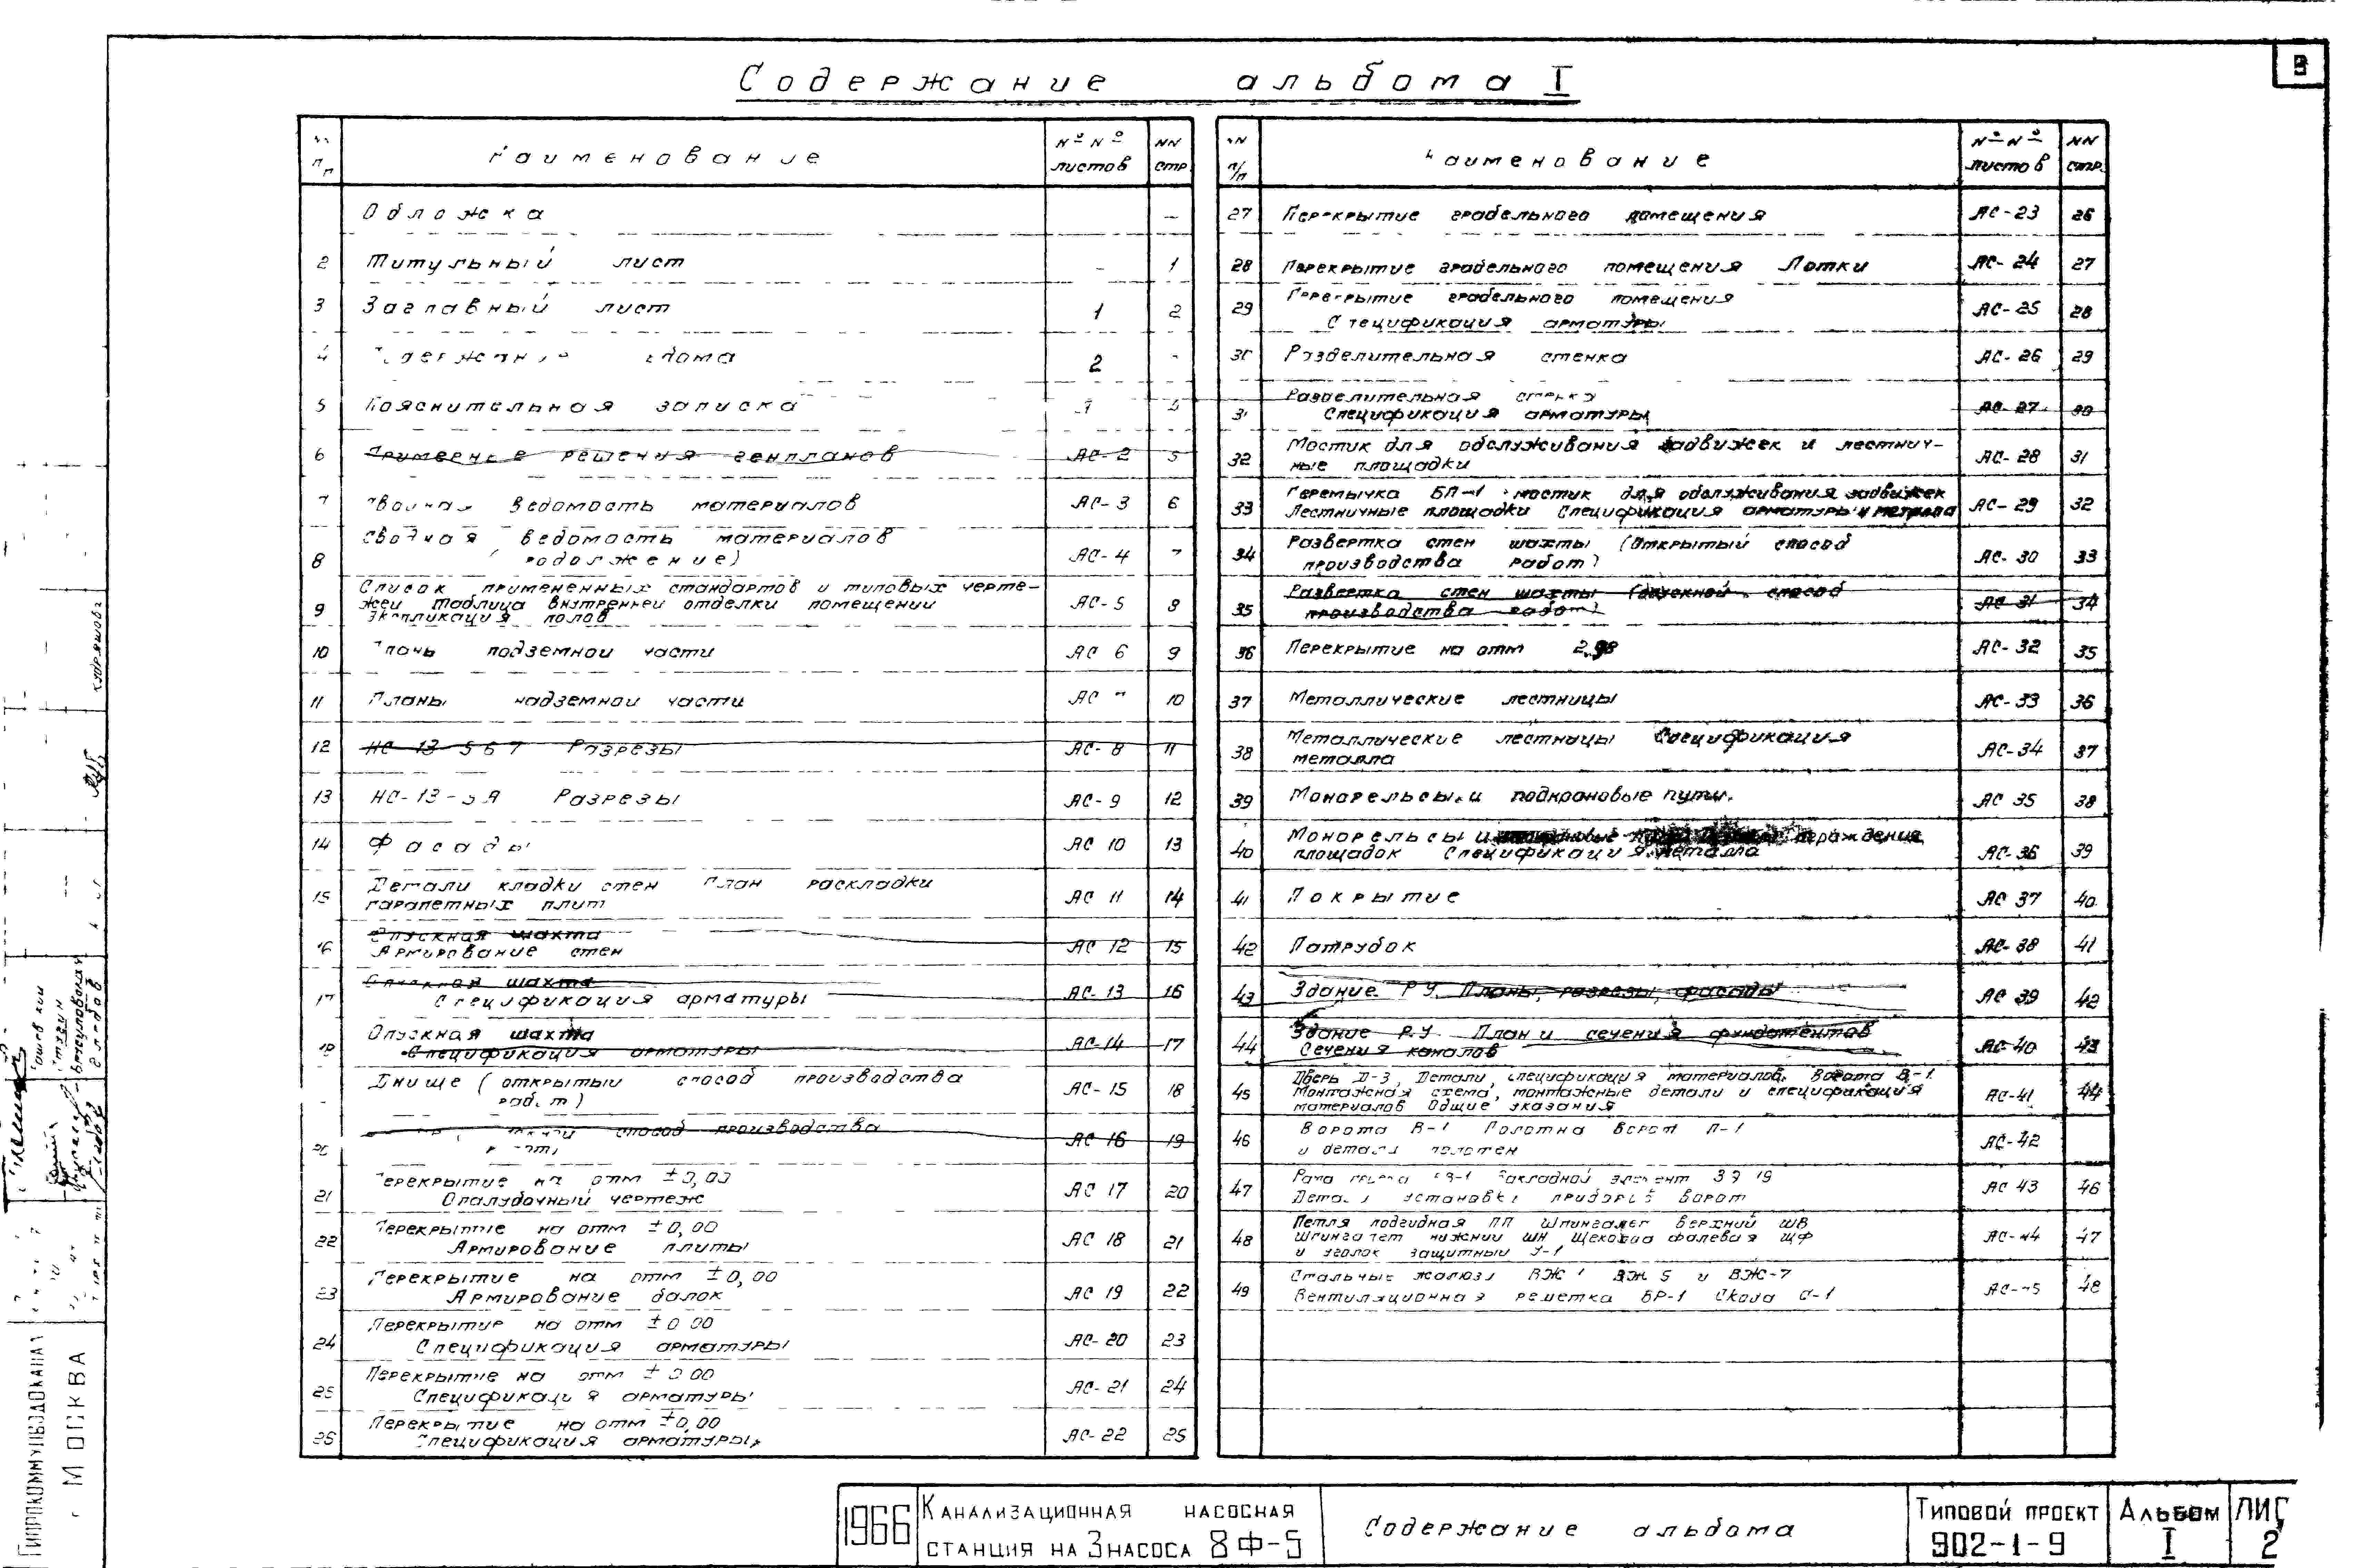 Содержание альбома I
3
Наименование
№ № листов
NN стр
Обложка —
2 Титульный лист - 1
3 Заглавный лист 1 2
4 2
5 Пояснительная записка
6 решения генпланов АС-2 5
7 ведомость материалов АС-3 6
8 Сводная ведомость материалов
АС-4 7
Список примененных стандартов и типовых черте-
9 жей Таблица внутренней отделки помещений АС-5 8
Экспликация полов
10 подземной части АС 6 9
11 Планы надземной части АС 7 10
12 НС-13 5 6 7 Разрезы АС-8 11
13 НС-13-5А Разрезы АС-9 12
14 Фасады АС 10 13
Детали кладки стен План раскладки
15 парапетных плит АС 11 14
Опускная шахта
16 Армирование стен АС 12 15
Опускная шахта
17 Спецификация арматуры АС-13 16
Опускная шахта
18 Спецификация арматуры АС-14 17
Днище (открытый способ производства
работ) АС-15 18
способ производства
20 АС 16 19
Перекрытие на отм ±0,00
21 Опалубочный чертеж АС 17 20
Перекрытие на отм ±0,00
22 Армирование плиты АС 18 21
Перекрытие на отм ±0,00
23 Армирование балок АС 19 22
Перекрытие на отм ±0 00
24 Спецификация арматуры АС-20 23
Перекрытие на отм ±0 00
25 Спецификация арматуры АС-21 24
Перекрытие на отм ±0,00
26 Спецификация арматуры АС-22 25
NN п/п
Наименование
№ № листов
NN стр.
27 Перекрытие грабельного помещения АС-23 26
28 Перекрытие грабельного помещения Лотки АС-24 27
Перекрытие грабельного помещения
29 Спецификация арматуры АС-25 28
30 Разделительная стенка АС-26 29
Разделительная стенка
31 Спецификация арматуры АС-27 30
Мостик для обслуживания задвижек и лестнич-
32 ные площадки АС-28 31
Перемычка БП-1 мостик для обслуживания задвижек
33 Лестничные площадки Спецификация арматуры и металла АС-29 32
34 Развертка стен шахты (Открытый способ
производства работ) АС-30 33
Развертка стен шахты (опускной способ
35 производства работ) АС 31 34
36 Перекрытие на отм 2.98 АС-32 35
37 Металлические лестницы АС-33 36
Металлические лестницы Спецификация
38 металла АС-34 37
39 Монорельсы и подкрановые пути. АС 35 38
Монорельсы и ограждение
40 площадок Спецификация металла АС-36 39
41 Покрытие АС 37 40
42 Патрубок АС-38 41
43 Здание Р.У. Планы, разрезы, фасады АС 39 42
44 Здание Р.У. План и сечения фундаментов
Сечения каналов АС-40 43
Дверь Д-3, Детали, спецификация материалов. Ворота В-1.
45 Монтажная схема, монтажные детали и спецификация АС-41 44
материалов Общие указания
46 Ворота В-1 Полотна ворот П-1
и детали полотен АС-42
47 Закладной элемент ЗЭ 19 АС 43 46
Детали установки приборов ворот
Петля подгибная ПП Шпингалет верхний ШВ
48 Шпингалет нижний ШН Щеколда фалевая ЩФ АС-44 47
и уголок защитный У-1
Стальные жалюзи ВЖ 1 ВЖ 5 и ВЖ-7
49 Вентиляционная решетка БР-1 Скоба С-1 АС-45 48
Гипрокоммунводоканал
г МОСКВА
1966
Канализационная насосная
станция на 3 насоса 8Ф-5
Содержание альбома
Типовой проект
902-1-9
Альбом
I
ЛИС
2